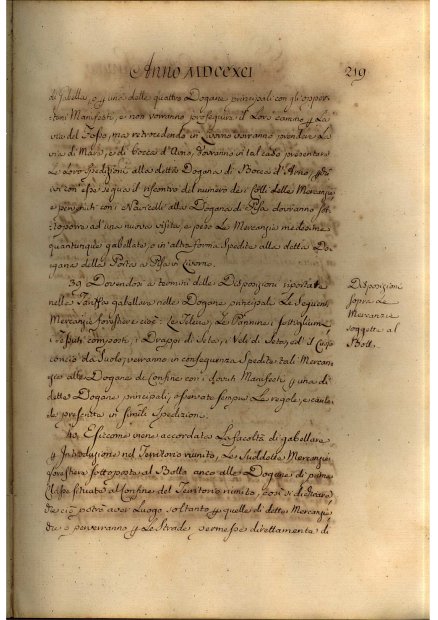 Anno MDCCXCI
219
di Gabella, o p una delle quattro Dogane principali con gli oppor-
tuni Manifesti, e non vorranno proseguire il Loro camino p La
via del Fosso, ma retrocedendo in Livorno vorranno prendere La
via di Mare, e di Bocca d'Arno, dovranno in tal caso presentare
Le Loro Spedizioni alla detta Dogana di Bocca d'Arno,
ivi con esse segua il riscontro del numero dei Colli delle Mercanzie
e pervenuti con i Navicelli alla Dogana di Pisa dovranno sot-
toporre ad una nuova visita, e peso Le Mercanzie medesime
quantunque gabellate o in altra forma Spedite alla detta Do-
gana della Porta a Pisa in Livorno.
39. Dovendosi a termini delle Disposizioni riportate
nella Tariffa gabellare nelle Dogane principali Le Seguenti
Mercanzie forestiere cioè: Le Telerie, Le Pannine,
i Tessuti composti, i Drappi di Seta, i Veli di Seta, ed il Cuojo
concio da Suolo, verranno in conseguenza Spedite tali Mercan-
zie alle Dogane di Confine con i dovuti Manifesti p una di
dette Dogane principali, osservate sempre Le regole, e caute-
le prescritte in simili Spedizioni.
Disposizioni
sopra Le
Mercanzie
soggette al
Bollo.
40. E siccome viene accordata La facoltà di gabellare
p Introduzione nel Territorio riunito, Le Suddette Mercanzie
forestiere sottoposte al Bollo anco alle Dogane di prima
Classe situate al Confine del Territorio riunito, così si dichiara,
che ciò potrà aver Luogo soltanto p quelle di dette Mercanzie
che perverranno p Le Strade permesse direttamente di